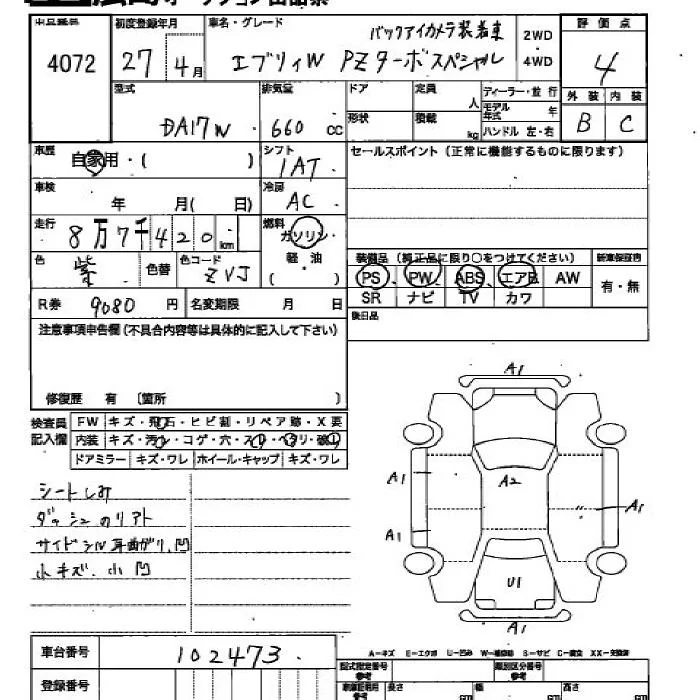 4072
初度登録年月
27年4月
車名・グレード
バックアイカメラ装着車
エブリィW PZターボスペシャル
2WD
4WD
評価点
4
外装 内装
B C
型式
DA17W
排気量
660 cc
ドア
形状
定員
人
積載
kg
ディーラー・並行
モデル年式 年
ハンドル 左・右
車歴
自家用・( )
シフト
1AT
セールスポイント(正常に機能するものに限ります)
車検
年 月( 日)
冷房
AC
走行
8万7千420km
燃料
ガソリン
軽油
色
紫
色替
色コード
ZVJ
装備品(純正品に限り○をつけてください)
新車保証書
PS PW ABS エアB AW
SR ナビ TV カワ
有・無
R券 9080円
名変期限 月 日
後日品
注意事項申告欄(不具合内容等は具体的に記入して下さい)
修復歴 有 〔箇所 〕
検査員
記入欄
FW キズ・飛石・ヒビ割・リペア跡・X要
内装 キズ・汚レ・コゲ・穴・スレ・ヘタリ・破レ
ドアミラー キズ・ワレ ホイール・キャップ キズ・ワレ
シートしみ
ダッシュのリアト
サイドシル耳曲がり、凹
小キズ、小凹
A1
A1
A2
A1
A1
U1
A1
A-キズ E-エクボ U-凹み W-補修跡 S-サビ C-腐食 XX-交換済
車台番号
102473
型式指定番号
参考
類別区分番号
参考
登録番号
長さ cm 幅 cm 高さ cm